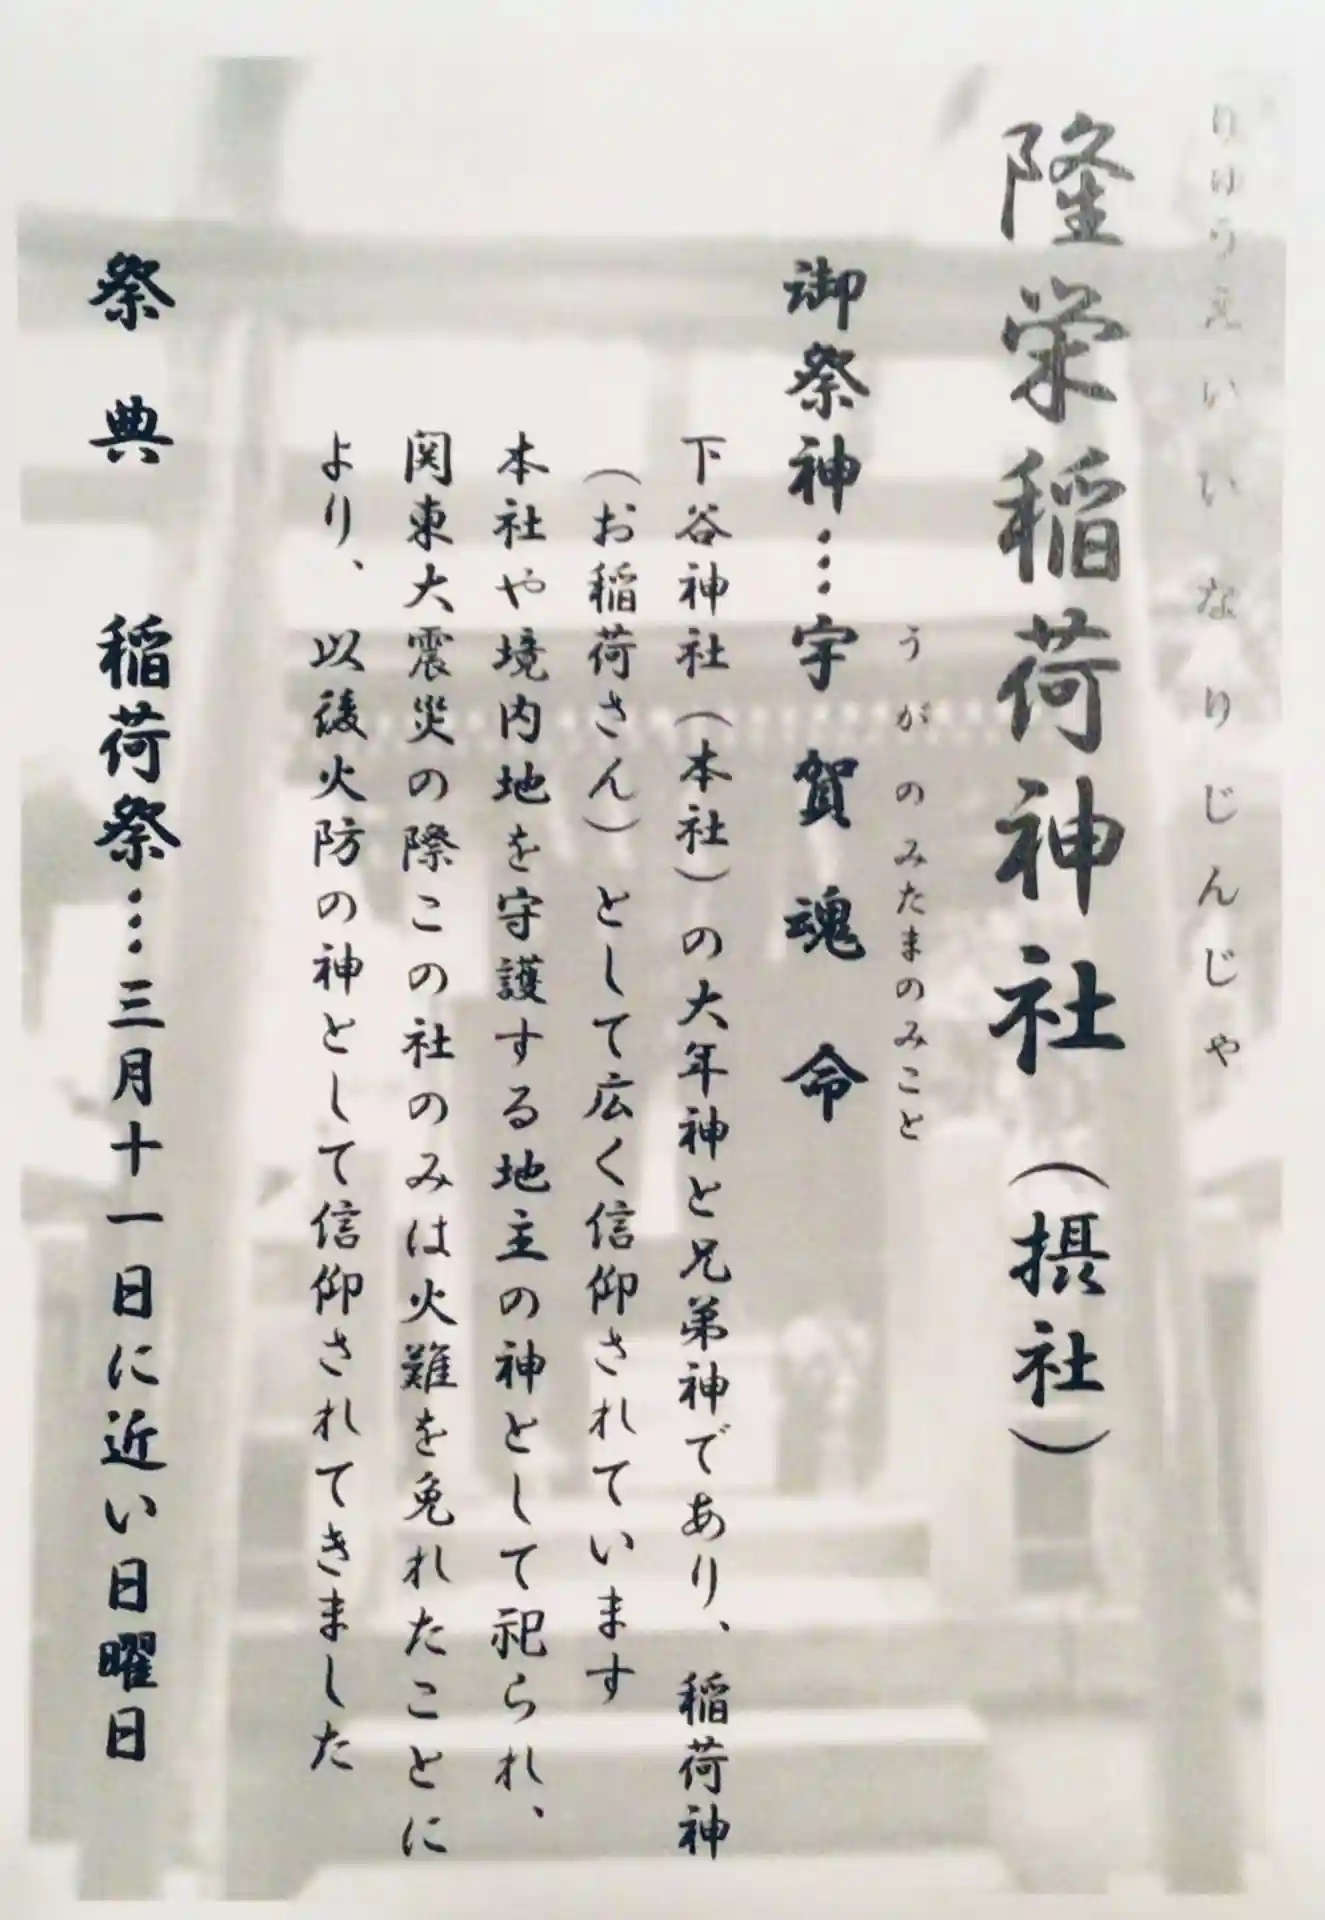 りゅうえいいなりじんじゃ
隆栄稲荷神社（摂社）
うがのみたまのみこと
御祭神…宇賀魂命
下谷神社（本社）の大年神と兄弟神であり、稲荷神
（お稲荷さん）として広く信仰されています
本社や境内地を守護する地主の神として祀られ、
関東大震災の際この社のみは火難を免れたことに
より、以後火防の神として信仰されてきました
祭典　稲荷祭…三月十一日に近い日曜日